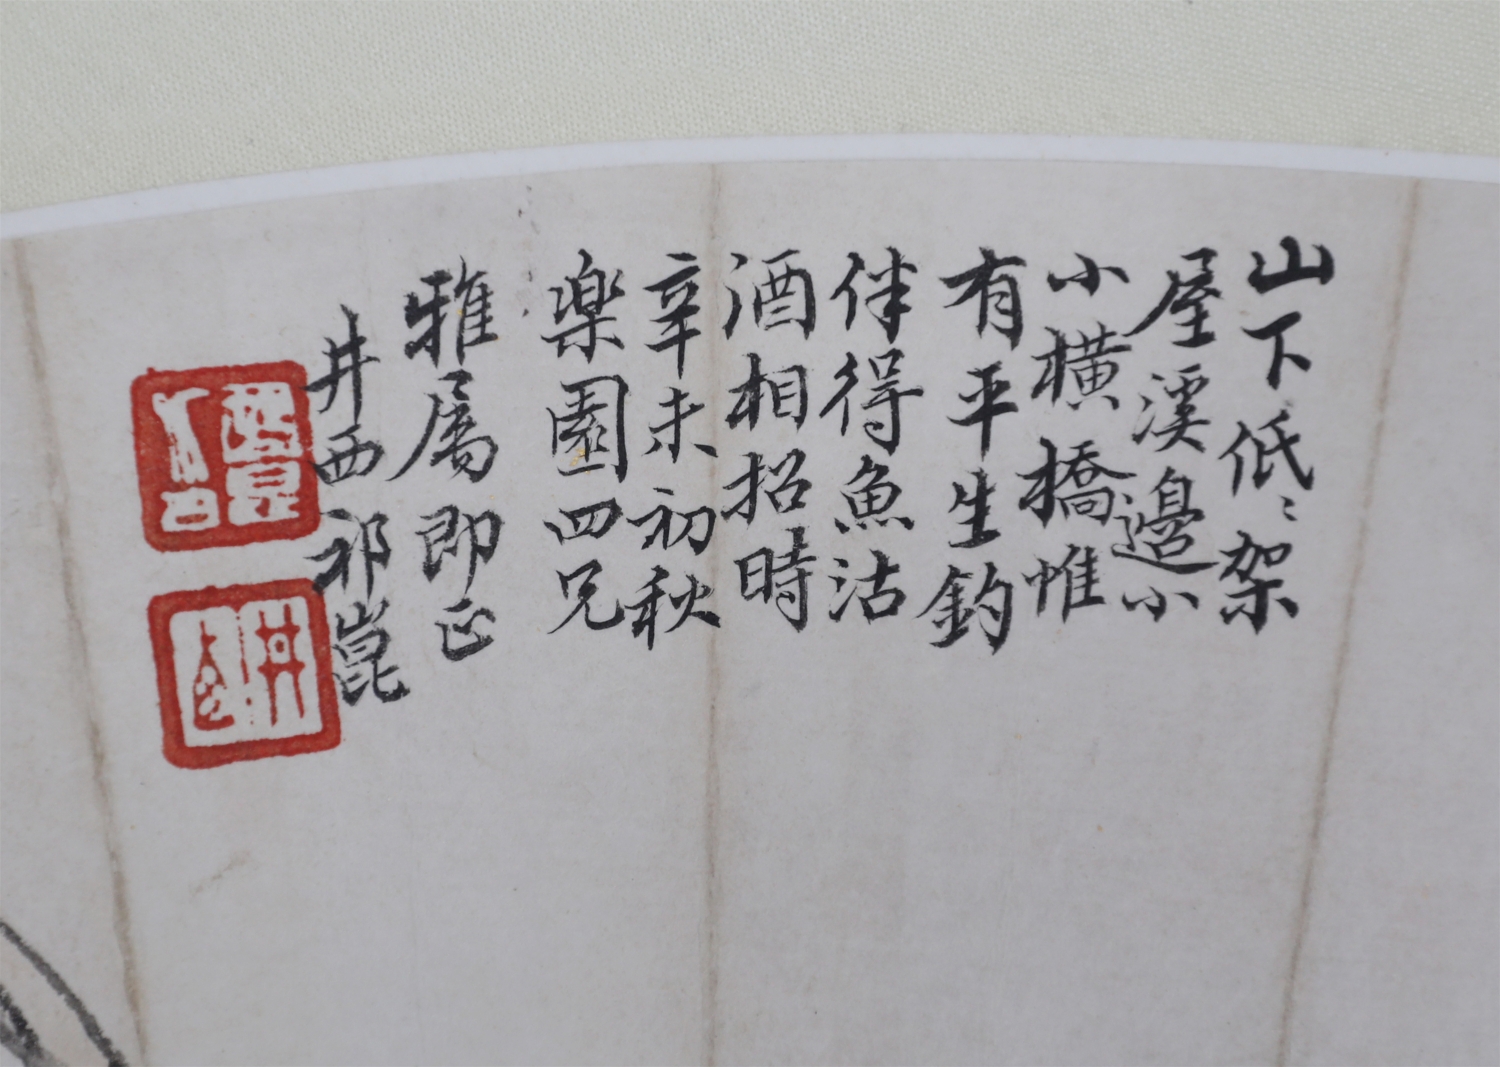 山下低〻架
屋溪邊小
小橫橋惟
有平生釣
伴得魚沽
酒相招時
辛未初秋
樂園四兄
雅属即正
井西祁崑
祁崑之印
井西